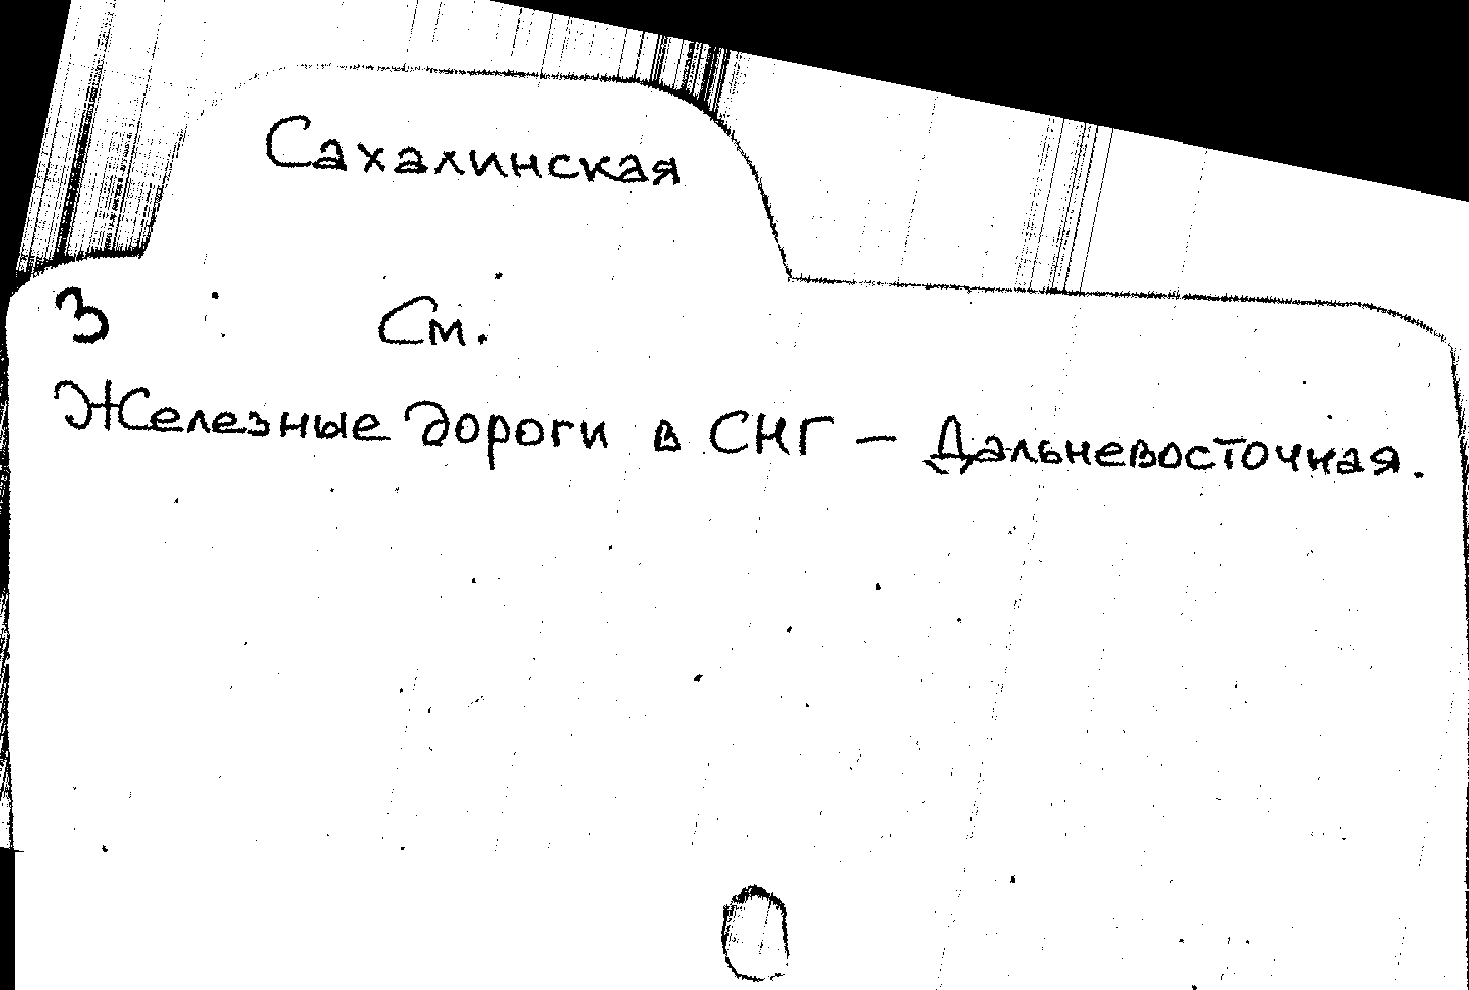 Сахалинская
З
См.
Железные дороги в СНГ – Дальневосточная.